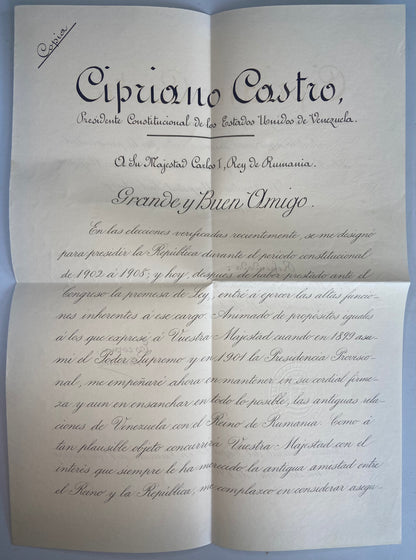 Copia
Cipriano Castro,
Presidente Constitucional de los Estados Unidos de Venezuela.
A Su Majestad Carlos I, Rey de Rumania.
Grande y Buen Amigo.
En las elecciones verificadas recientemente, se me designó
para presidir la República durante el período constitucional
de 1902 á 1905; y hoy, después de haber prestado ante el
Congreso la promesa de Ley, entré a ejercer las altas funcio-
nes inherentes á ese cargo. Animado de propósitos iguales
á los que expresé á Vuestra Majestad cuando en 1899 asu-
mí el Poder Supremo y en 1901 la Presidencia Provisio-
nal, me empeñaré ahora en mantener en su cordial firme-
za y aun en ensanchar en todo lo posible las antiguas rela-
ciones de Venezuela con el Reino de Rumania. Como á
tan plausible objeto concurrirá Vuestra Majestad con el
interés que siempre le ha merecido la antigua amistad entre
el Reino y la República, me complazco en considerar asegu-